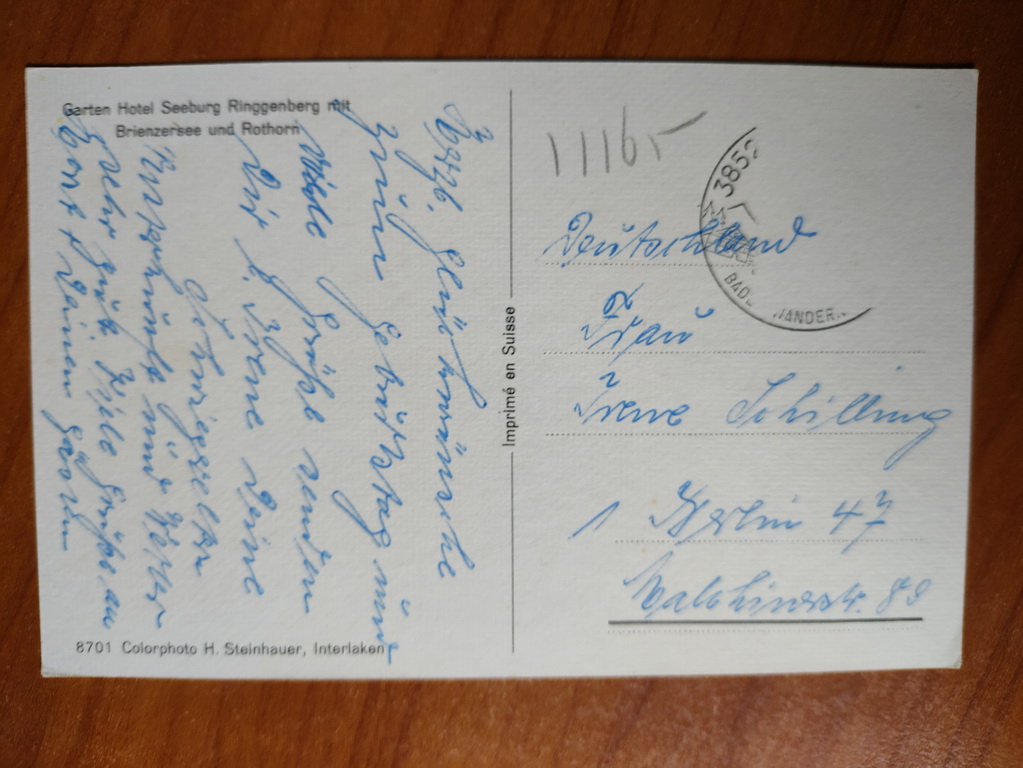 Garten Hotel Seeburg Ringgenberg mit
Brienzersee und Rothorn
Herzl. Glückwünsche
zum Geburtstag und
viele Grüße senden
Dir l. Irene Deine
Schwiegereltern
sehr gut. Viele Grüße an
Horst + Deinen
8701 Colorphoto H. Steinhauer, Interlaken
Imprimé en Suisse
11165
3852
BAD
WANDER
Deutschland
Frau
Irene Schilling
1 Berlin 47